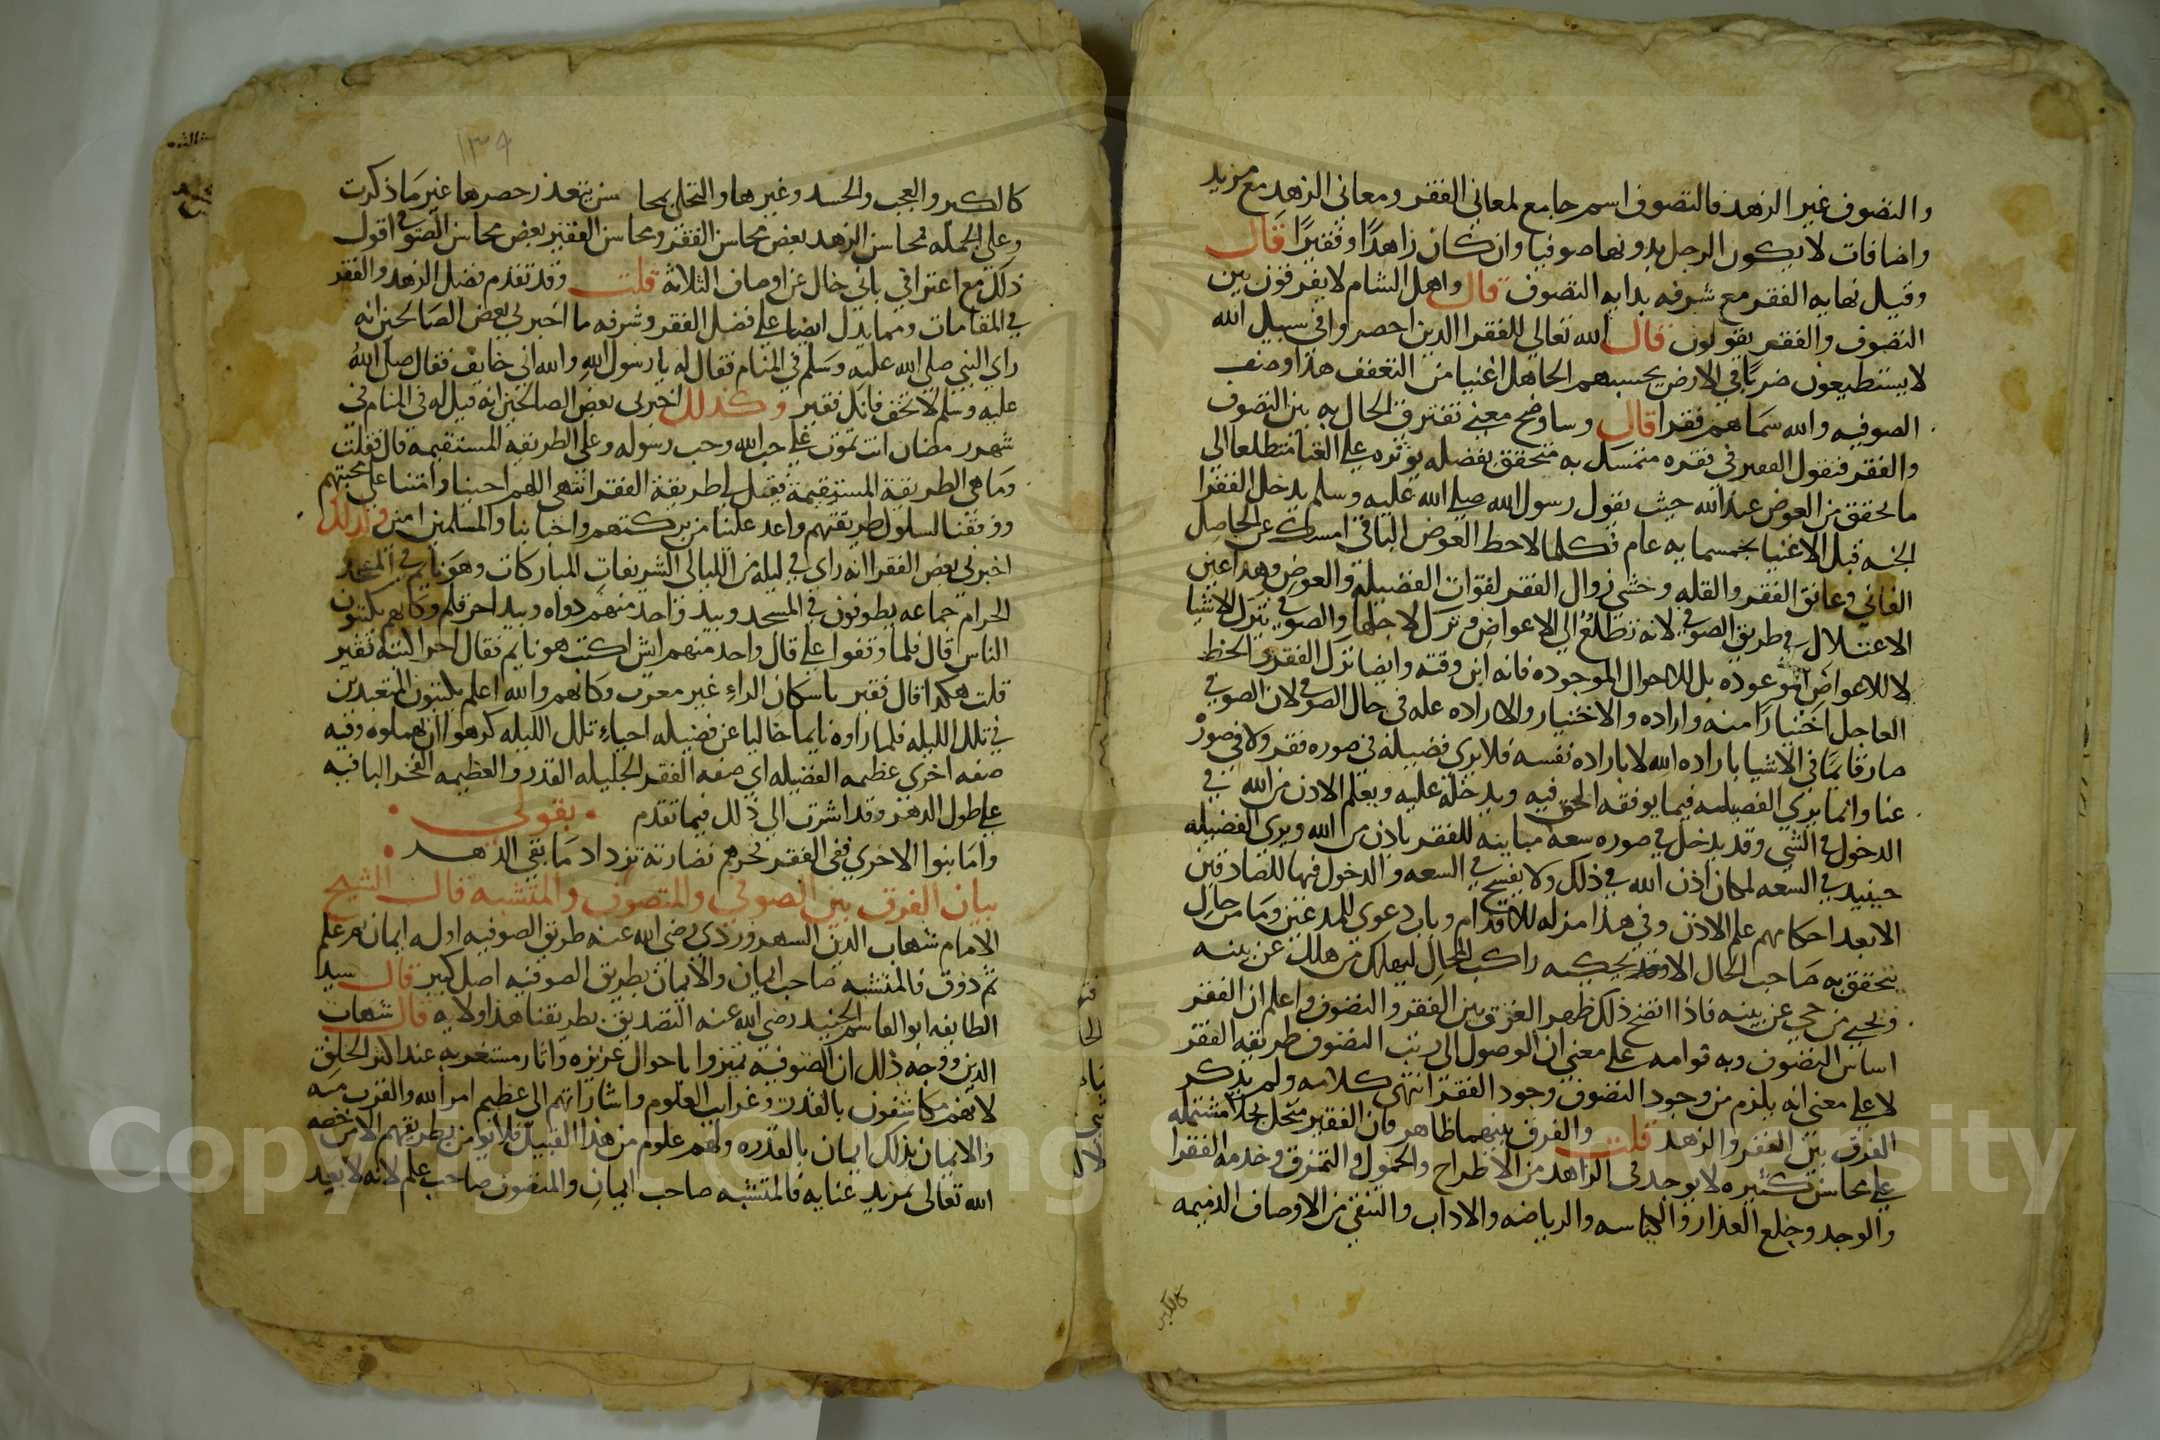 والتصوف غير الزهد فالتصوف اسم جامع لمعاني الفقر ومعاني الزهد مع مزيد
واضافات لا يكون الرجل بدونها صوفيا وان كان زاهدًا وفقيرًا قال
وقيل نهايه الفقر مع شرفه بدايه التصوف قال واهل الشام لا يفرقون بين
التصوف والفقر يقولون قال الله تعالى للفقرا الذين احصروا في سبيل الله
لا يستطيعون ضربًا في الارض يحسبهم الجاهل اغنيا من التعفف هذا وصف
الصوفيه والله سماهم فقرا قال وساوضح معنى تفترق الحال به بين التصوف
والفقر فنقول الفقير في فقره متمسك به متحقق بفضله يوثره على الغنا متطلعا الى
ما تحقق من العوض عند الله حيث يقول رسول الله صلى الله عليه وسلم يدخل الفقرا
الجنه قبل الاغنيا بخمسمايه عام فكلما لاحظ العوض الباقي امسك عن الحاصل
الفاني وعانق الفقر والقله وخشي زوال الفقر لفوات الفضيله والعوض وهذا عين
الاعتلال في طريق الصوفي لانه تطلع الى الاعواض وترك لاجلها والصوفي يترك الاشيا
لا للاعواض الموعوده بل للاحوال الموجوده فانه ابن وقته وايضا ترك الفقير الحظ
العاجل اختيارًا منه واراده والاختيار والاراده عله في حال الصوفي لان الصوفي
صار قايمًا في الاشيا باراده الله لا باراده نفسه فلا يرى فضيله في صوره فقر ولا في صورة
غنا وانما يرى الفضيله فيما يوفقه الحق فيه ويدخله عليه ويعلم الاذن من الله في
الدخول في الشي وقد يدخل في صوره سعه مباينه للفقر باذن من الله ويرى الفضيله
حينيذ في السعه لمكان اذن الله في ذلك ولا يفسح في السعه والدخول فيها للصادقين
الا بعد احكامهم علم الاذن وفي هذا مزله للاقدام وباب دعوى للمدعين وما من حال
يتحقق به صاحب الحال الا وقد يحكيه راكب المحال ليهلك من هلك عن بينه
ويحيى من حي عن بينه فاذا اتضح ذلك ظهر الفرق بين الفقر والتصوف واعلم ان الفقر
اساس التصوف وبه قوامه على معنى ان الوصول الى رتب التصوف طريقه الفقر
لا على معنى انه يلزم من وجود التصوف وجود الفقر انتهى كلامه ولم يذكر
الفرق بين الفقر والزهد قلت والفرق بينهما ظاهر فان الفقير متحل بحلا مشتمله
على محاسن كثيره لا توجد في الزاهد من الاطراح والخمول والتمزق وخدمه الفقرا
والوجد وخلع العذار والكياسه والرياضه والاداب والتنقي من الاوصاف الذميمه
كالكبر
١٣٩
كالكبر والعجب والحسد وغيرها والتحلي بمحاسن يتعذر حصرها غير ما ذكرت
وعلى الجمله محاسن الزهد بعض محاسن الفقر ومحاسن الفقير بعض محاسن الصوفي اقول
ذلك مع اعترافي باني خال عن اوصاف الثلاثة قلت وقد تقدم فضل الزهد والفقر
في المقامات ومما يدل ايضا على فضل الفقر وشرفه ما اخبرني بعض الصالحين انه
راى النبي صلى الله عليه وسلم في المنام فقال له يا رسول الله والله اني خايف فقال صلى الله
عليه وسلم لا تخف فانك فقير وكذلك اخبرني بعض الصالحين انه قيل له في المنام في
شهر رمضان انت تموت على حب الله وحب رسوله وعلى الطريقه المستقيمة قال فقلت
وما هي الطريقة المستقيمة فقيل لي طريقة الفقر انتهى اللهم احينا وامتنا على محبتهم
ووفقنا لسلوك طريقتهم واعد علينا من بركتهم واحبابنا والمسلمين امين وكذلك
اخبرني بعض الفقرا انه راى في ليلة من الليالي الشريفات المباركات وهو نايم في المسجد
الحرام جماعه يطوفون في المسجد وبيد واحد منهم دواه وبيد اخر قلم وكانهم يكتبون
الناس قال فلما وقفوا علي قال واحد منهم ايش اكتب هو نايم فقال اخر اكتبه فقير
قلت هكذا قال فقير باسكان الراء غير معرب وكانهم والله اعلم يكتبون المتعبدين
في تلك الليله فلما راوه نايما خاليا عن فضيله احياء تلك الليله كرهوا ان يهملوه وفيه
صفه اخرى عظيمه الفضيله اي صفه الفقر الجليله القدر والعظيمه الفخر الباقيه
على طول الدهر وقد اشرت الى ذلك فيما تقدم بقولي
واما بنوا الاخرى ففي الفقر فخرهم نضارته تزداد ما بقي الدهر
بيان الفرق بين الصوفي والمتصوف والمتشبه قال الشيخ
الامام شهاب الدين السهروردي رضي الله عنه طريق الصوفيه اوله ايمان ثم علم
ثم ذوق فالمتشبه صاحب ايمان والايمان بطريق الصوفيه اصل كبير قال سيد
الطايفه ابو القاسم الجنيد رضي الله عنه التصديق بطريقنا هذا ولايه قال شهاب
الدين ووجه ذلك ان الصوفيه تميزوا باحوال عزيزه واثار مستغربه عند اكثر الخلق
لانهم مكاشفون بالقدر وغرايب العلوم واشاراتهم الى عظيم امر الله والقرب منه
والايمان بذلك ايمان بالقدره ولهم علوم من هذا القبيل فلا يومن بطريقهم الا من خصه
الله تعالى بمزيد عنايه فالمتشبه صاحب ايمان والمتصوف صاحب علم لانه لا بعيد